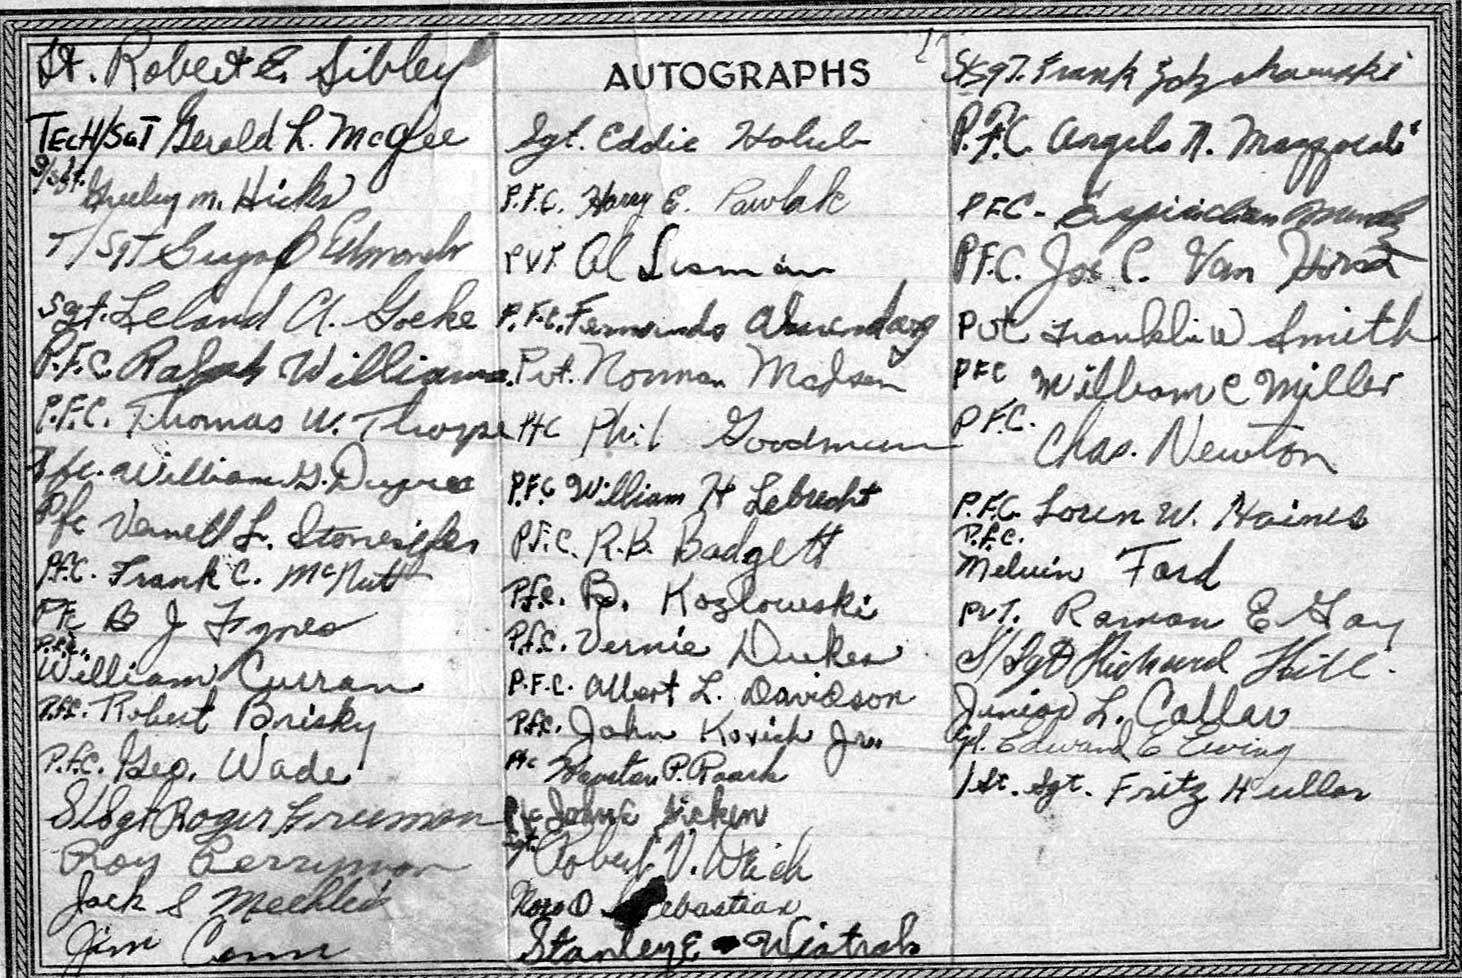 Lt. Robert E. Sibley
TECH/SGT Gerald L. McGlee
S/Sgt. Greeley M. Hicks
T/SGT Edmonds
Sgt. Leland A. Goeke
P.F.C. Ralph Williams
P.F.C. Thomas W. Thorpe
Pfc. William G. Dupree
Pfc Vernell L. Stonesifer
P.F.C. Frank C. McNutt
PFC B J Fynes
P.F.C. William Curran
P.F.C. Robert Brisky
P.F.C. Geo. Wade
S/Sgt Roger Freeman
Roy Berryman
Jack S
Jim Conn
AUTOGRAPHS
Sgt. Eddie Holub
P.F.C. Harry E. Pawlak
PVT. Al Sisman
P.F.C. Fernando
Pvt. Norman Madsen
Pfc Phil Goodman
P.F.C William H Lebrecht
P.F.C. R.B. Badgett
P.F.C. B. Kozlowski
P.F.C. Vernie Dukes
P.F.C. Albert L. Davidson
P.F.C. John Kovich Jr.
Pfc P. Roark
Pfc John C Sicken
Sgt. Robert V.
Sebastian
Stanley E Wiatrak
S/SgT. Frank
P.F.C. Angelo N.
PFC-
PF.C. Joe C. Van Horst
Pvt Franklin W Smith
PFC William C Miller
P.F.C. Chas. Newton
P.F.C. Loren W. Haines
P.F.C. Melvin Ford
PVT. Raman E Gay
S/Sgt Richard Hill.
Junior L. Collar
Edward E Ewing
1 St. Sgt. Fritz Huller